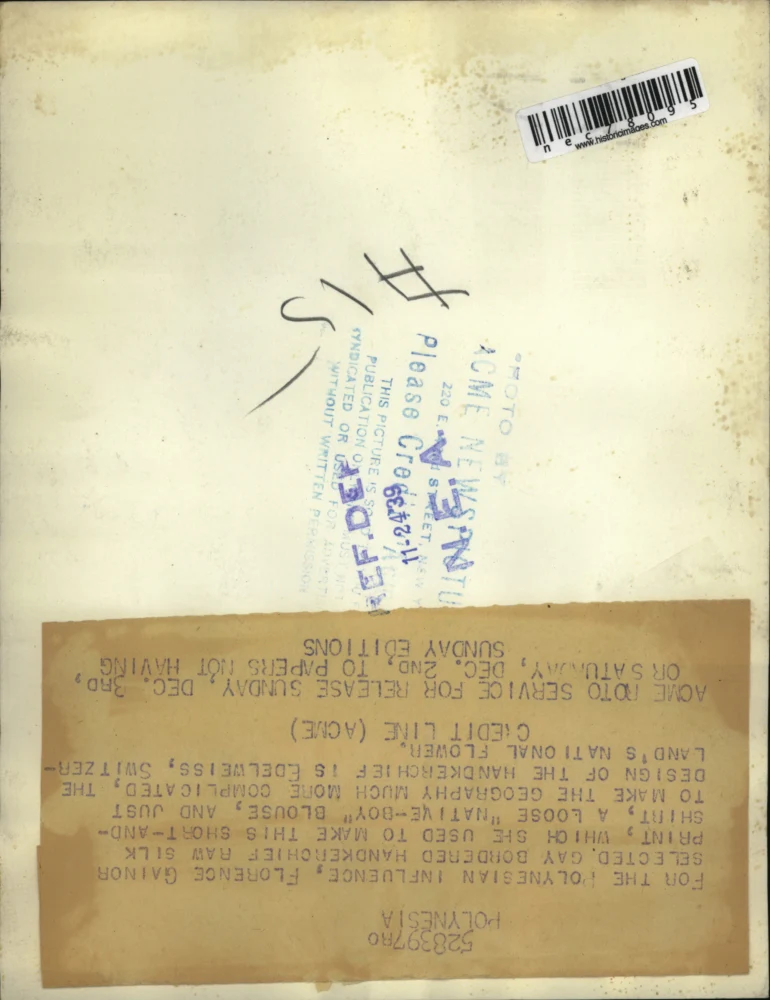 nec78095
www.historicimages.com
# 15
PHOTO BY
ACME NEWSPICTU
220 E.
STREET, NEW Y
Please Credit
N.E.A.
11-24-39
THIS PICTURE IS
PUBLICATION
SYNDICATED OR USED FOR
WITHOUT WRITTEN PERMISSION
REF.DEP
528397RO
POLYNESIA
FOR THE POLYNESIAN INFLUENCE, FLORENCE GAINOR
SELECTED GAY BORDERED HANDKERCHIEF RAW SILK
PRINT, WHICH SHE USED TO MAKE THIS SHORT-AND-
SHIRT, A LOOSE "NATIVE-BOY" BLOUSE, AND JUST
TO MAKE THE GEOGRAPHY MUCH MORE COMPLICATED, THE
DESIGN OF THE HANDKERCHIEF IS EDELWEISS, SWITZER-
LAND'S NATIONAL FLOWER.
CREDIT LINE (ACME)
ACME ROTO SERVICE FOR RELEASE SUNDAY, DEC. 3RD,
OR SATURDAY, DEC. 2ND, TO PAPERS NOT HAVING
SUNDAY EDITIONS